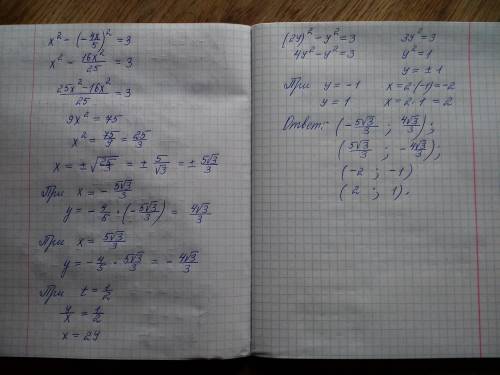 x² - (-4x/5)² = 3
x² - 16x²/25 = 3
25x² - 16x²/25 = 3
9x² = 75
x² = 75/9 = 25/3
x = ±√25/3 = ± 5/√3 = ± 5√3/3
При x = - 5√3/3
y = - 4/5 · (- 5√3/3) = 4√3/3
При x = 5√3/3
y = - 4/5 · 5√3/3 = - 4√3/3
При t = 1/2
y/x = 1/2
x = 2y
(2y)² - y² = 3
4y² - y² = 3
3y² = 3
y² = 1
y = ± 1
При y = -1 x = 2·(-1) = -2
y = 1 x = 2·1 = 2
Ответ: (- 5√3/3 ; 4√3/3);
(5√3/3 ; - 4√3/3);
(-2 ; -1)
(2 ; 1).